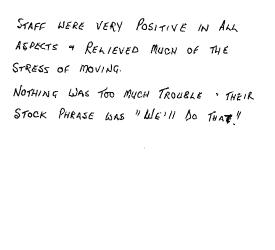 STAFF WERE VERY POSITIVE IN ALL
ASPECTS + RELIEVED MUCH OF THE
STRESS OF MOVING.
NOTHING WAS TOO MUCH TROUBLE · THEIR
STOCK PHRASE WAS "WE'll DO THAT!"